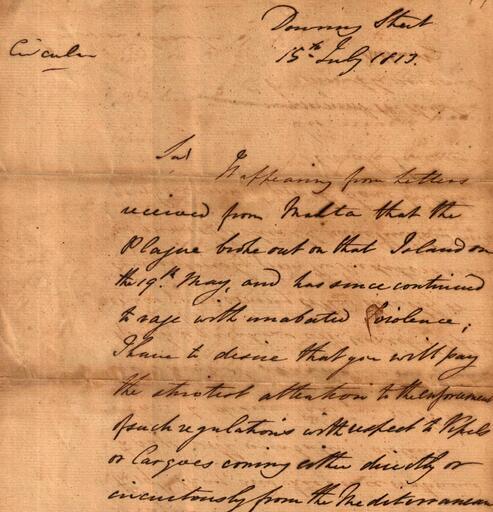 Downing Street
15th July 1813.
Circular
Sir/ It appearing from Letters
received from Malta that the
Plague broke out on that Island on
the 19th May, and has since continued
to rage with unabated Violence;
I have to desire that you will pay
the strictest attention to the enforcement
of such regulations with respect to Vessels
or Cargoes coming either directly or
circuitously from the Mediterranean